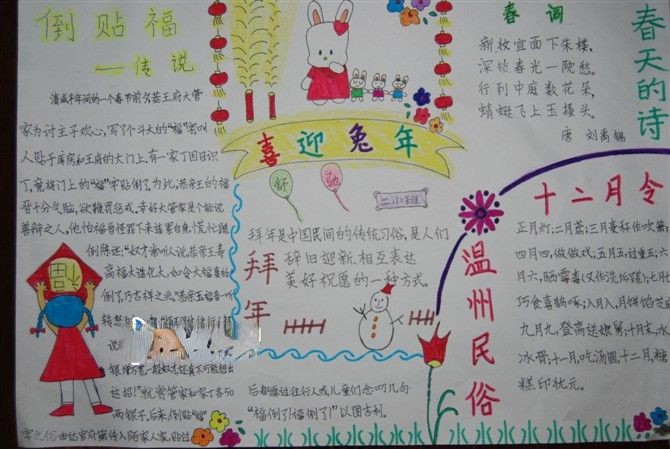 倒贴福
——传说
清咸丰年间的一个春节前夕恭王府大管
家为讨主子欢心,写了个斗大的“福”字叫
人贴于库房和王府的大门上,有一家丁因目识
丁,竟将门上的“福”字贴倒了。为此,恭亲王的福
晋十分气恼,欲鞭罚惩戒。幸好大管家是个能说
善辩之人,他怕福晋怪罪下来
倒陈述:“奴才常听人说,恭亲王寿
高福大造化大,如今大福真的
倒了,乃吉祥之兆。”恭亲王福晋一听
说
达招!”就赏管家和家丁各50
两银子,后来,倒贴“福”
字之俗由达官府第传入陌家人家,贴过
后都愿过往行人或儿童们念叨几句
“福倒了!福倒了!”以图吉利。
喜迎兔年
拜年
拜年是中国民间的传统习俗,是人们
辞旧迎新、相互表达
美好祝愿的一种方式。
春词
新妆宜面下朱楼,
深锁春光一院愁。
行到中庭数花朵,
蜻蜓飞上玉搔头。
唐 刘禹锡
春天的诗
温州民俗
十二月令
正月灯;二月鸢;三月麦秆作吹箫;
四月四,做做戏;五月五,过重五;六
月六,晒霉毒(又作洗垢蹬);七月七,
巧食喜鹊啄;八月八,月饼馅芝
九月九,登高送娘舅;十月末,水
冰骨;十一月,吃汤圆;十二月,糖
糕印状元。
福